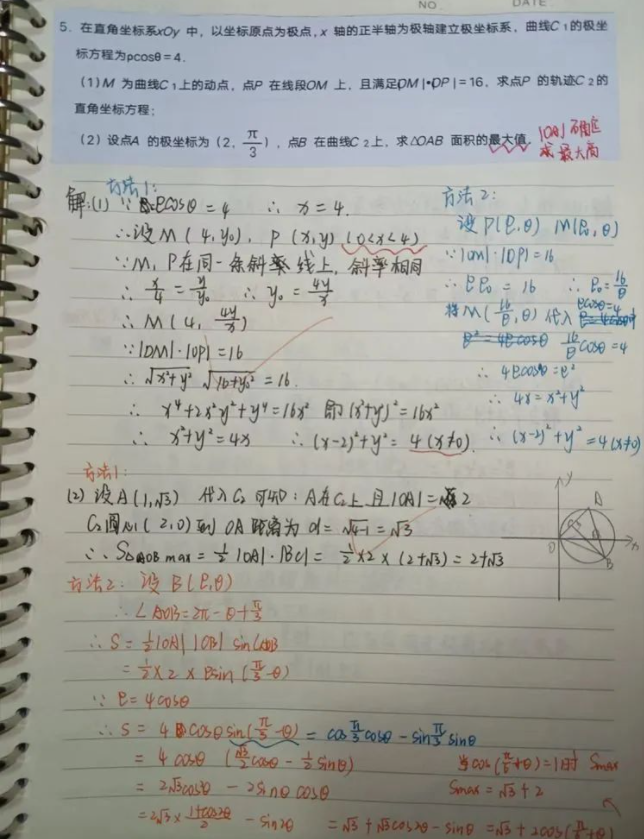 NO.
DATE.
5. 在直角坐标系xOy 中，以坐标原点为极点，x 轴的正半轴为极轴建立极坐标系，曲线C₁的极坐
标方程为ρcosθ=4.
(1)M 为曲线C₁上的动点，点P 在线段OM 上，且满足|OM|•|OP|=16，求点P 的轨迹C₂的
直角坐标方程；
(2) 设点A 的极坐标为 (2, π/3)，点B 在曲线C₂上，求△OAB 面积的最大值.
|OA|不固定
或最大高
方法1:
解:(1) ∵ ρcosθ=4 ∴ x=4.
∴设M(4,y₀), P(x,y) (0<x<4)
∵M、P在同一条斜率线上，斜率相同
∴ x/4 = y/y₀ ∴ y₀ = 4y/x
∴ M(4, 4y/x)
∵|OM|·|OP|=16
∴ √(x²+y²) √(16+y₀²) = 16.
∴ x⁴+2x²y²+y⁴=16x² 即(x²+y²)²=16x²
∴ x²+y²=4x ∴ (x-2)²+y²=4(x≠0).
方法2:
设P(ρ,θ) M(ρ₀,θ)
∵|OM|·|OP|=16
∴ ρρ₀=16 ∴ ρ₀=16/ρ
将M(16/ρ,θ)代入 ρcosθ=4
16/ρ cosθ=4
∴ 4ρcosθ=ρ²
∴ 4x=x²+y²
∴ (x-2)²+y²=4(x≠0)
方法1:
(2) 设A(1,√3) 代入C₂可知: A在C₂上且|OA|=2
C₂圆心(2,0)到OA距离为d=√(4-1)=√3
∴ S△AOB max = ½|OA|·|BC| = ½×2×(2+√3)=2+√3
y
A
O
B
x
方法2: 设B(ρ,θ)
∴ ∠AOB=2π-θ+π/3
∴ S=½|OA||OB|sin∠AOB
=½×2×ρsin(π/3-θ)
∵ ρ=4cosθ
∴ S = 4cosθsin(π/3-θ) = cosπ/3cosθ - sinπ/3sinθ
= 4cosθ (√3/2cosθ - ½sinθ)
= 2√3cos²θ - 2sinθcosθ
= 2√3×(1+cos2θ)/2 - sin2θ = √3+√3cos2θ - sin2θ = √3+2cos(π/6+2θ)
当cos(π/6+θ)=1时 Smax
Smax=√3+2